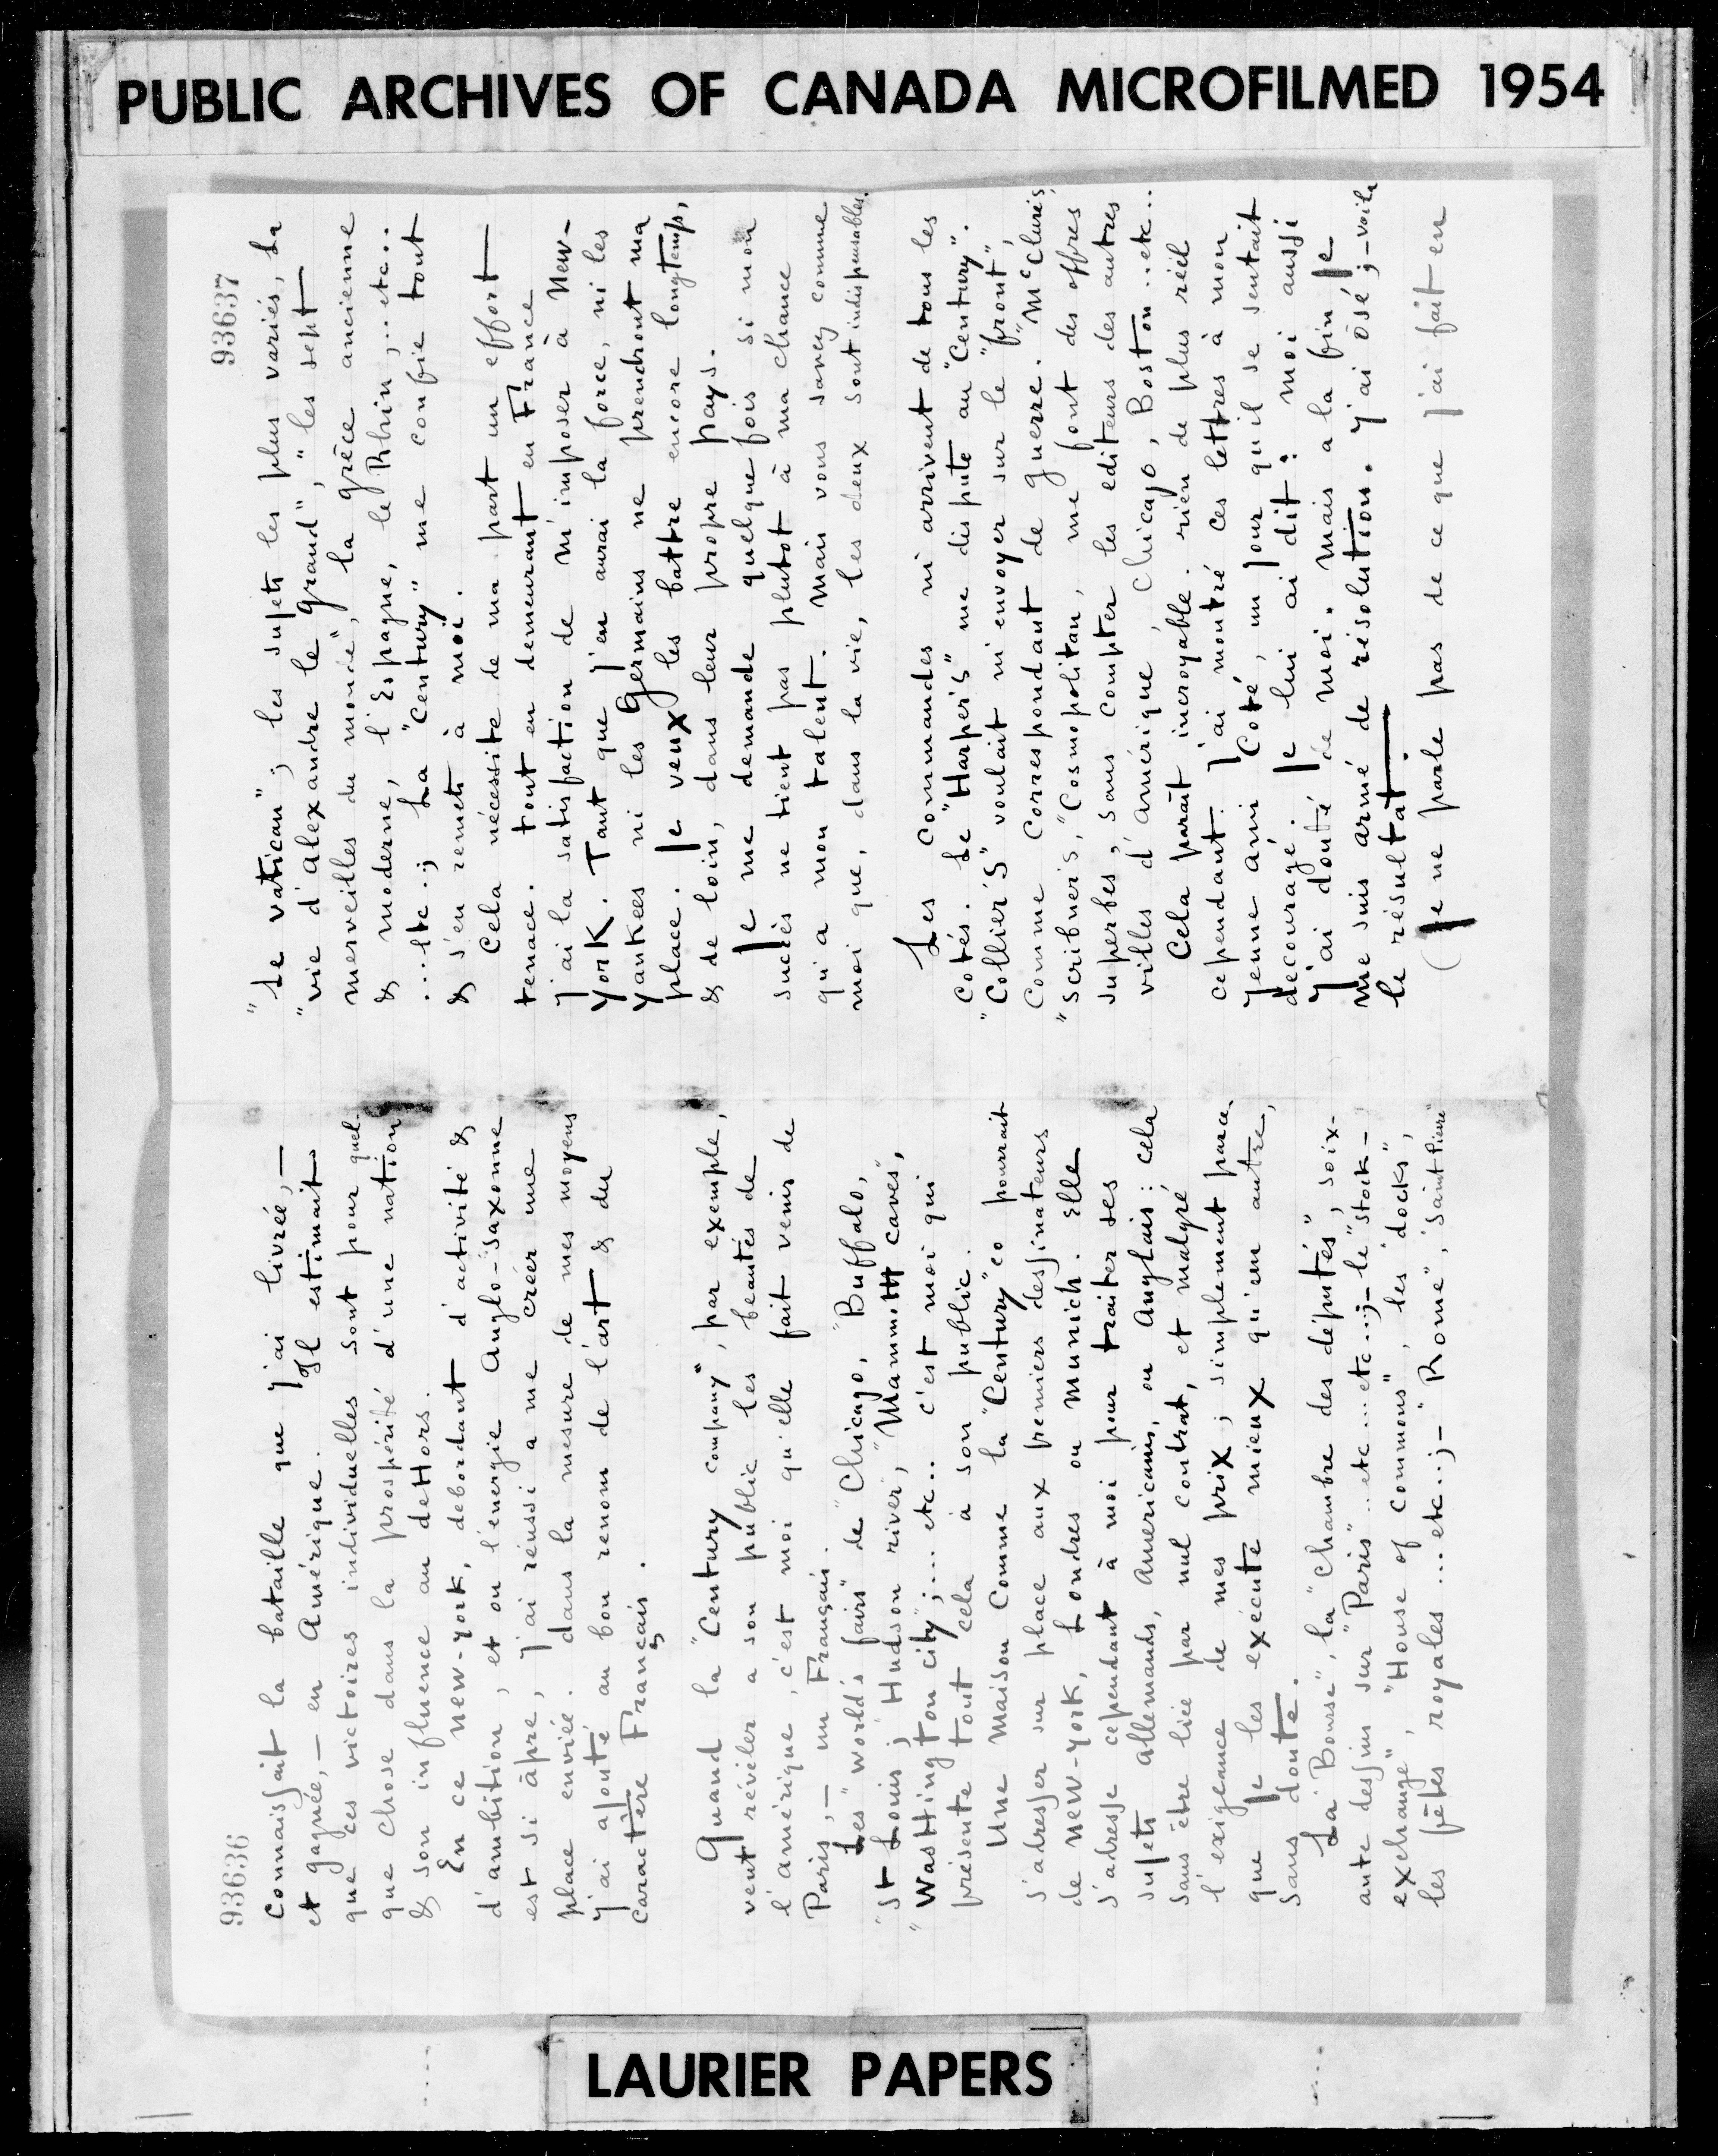 PUBLIC ARCHIVES OF CANADA MICROFILMED 1954
93636
connaissait la bataille que j'ai livrée,—
et gagnée,— en Amérique. Il estimait
que ces victoires individuelles sont pour quel-
que chose dans la prospérité d'une nation
& son influence au deHors.
En ce new-york, debordant d'activité &
d'ambition, et ou l'énergie Anglo-Saxonne
est si âpre, j'ai réussi a me créer une
place enviée. dans la mesure de mes moyens
j'ai ajouté au bon renom de l'art & du
caractère Français.
Quand la "Century company", par exemple,
veut révéler a son public les beautés de
l'amérique, c'est moi qu'elle fait venir de
Paris,— un Français.
Les "World's fairs" de "Chicago, "Buffalo,
"St Louis; "Hudson river, "Mammoth caves",
"WasHington city";... etc.. c'est moi qui
présente tout cela à son public.
Une maison comme la "Century" co pourrait
s'adresser sur place aux premiers dessinateurs
de new-york, Londres ou munich. Elle
s'adresse cependant à moi pour traiter ses
sujets allemands, Américains, ou Anglais: cela
sans être liée par nul contrat, et malgré
l'exigeance de mes prix; simplement parce
que je les exécute mieux qu'un autre,
sans doute.
La "Bourse", la "chambre des députés", soix-
ante dessins sur "Paris"..etc...etc..;- le "stock-
exchange", "House of commons", les "docks",
les fêtes royales ... etc..;- "Rome", "Saint Pierre"
93637
"Le vatican"; les sujets les plus variés, La
"vie d'alexandre le grand", "les sept
merveilles du monde", la grèce ancienne
& moderne, l'Espagne, le Rhin,...etc..
...etc.; La "Century" me confie tout
& s'en remet à moi.
Cela nécessite de ma part un effort
tenace. tout en demeurant en France
j'ai la satisfaction de m'imposer à New-
York. Tant que j'en aurai la force, ni les
yankees ni les Germains ne prendront ma
place. Je veux les battre encore longtemps,
& de loin, dans leur propre pays.
Je me demande quelque fois si mon
succès ne tient pas plutot à ma chance
qu'a mon talent. mais vous savez comme
moi que, dans la vie, les deux sont indispensables.
Les commandes m'arrivent de tous les
cotés. Le "Harper's" me dispute au "Century".
"Collier's" voulait m'envoyer sur le "front",
comme correspondant de guerre. "McClure's,
"scribner's, "Cosmopolitan, me font des offres
superbes, sans compter les editeurs des autres
villes d'amérique, Chicago, Boston..etc..
Cela parait incroyable. rien de plus réel
cependant. J'ai montré ces lettres à mon
jeune ami Coté, un jour qu'il se sentait
decouragé. Je lui ai dit: moi aussi
j'ai douté de moi. mais a la fin je
me suis armé de résolution. J'ai osé;-voila
le résultat.
(Je ne parle pas de ce que j'ai fait en
LAURIER PAPERS